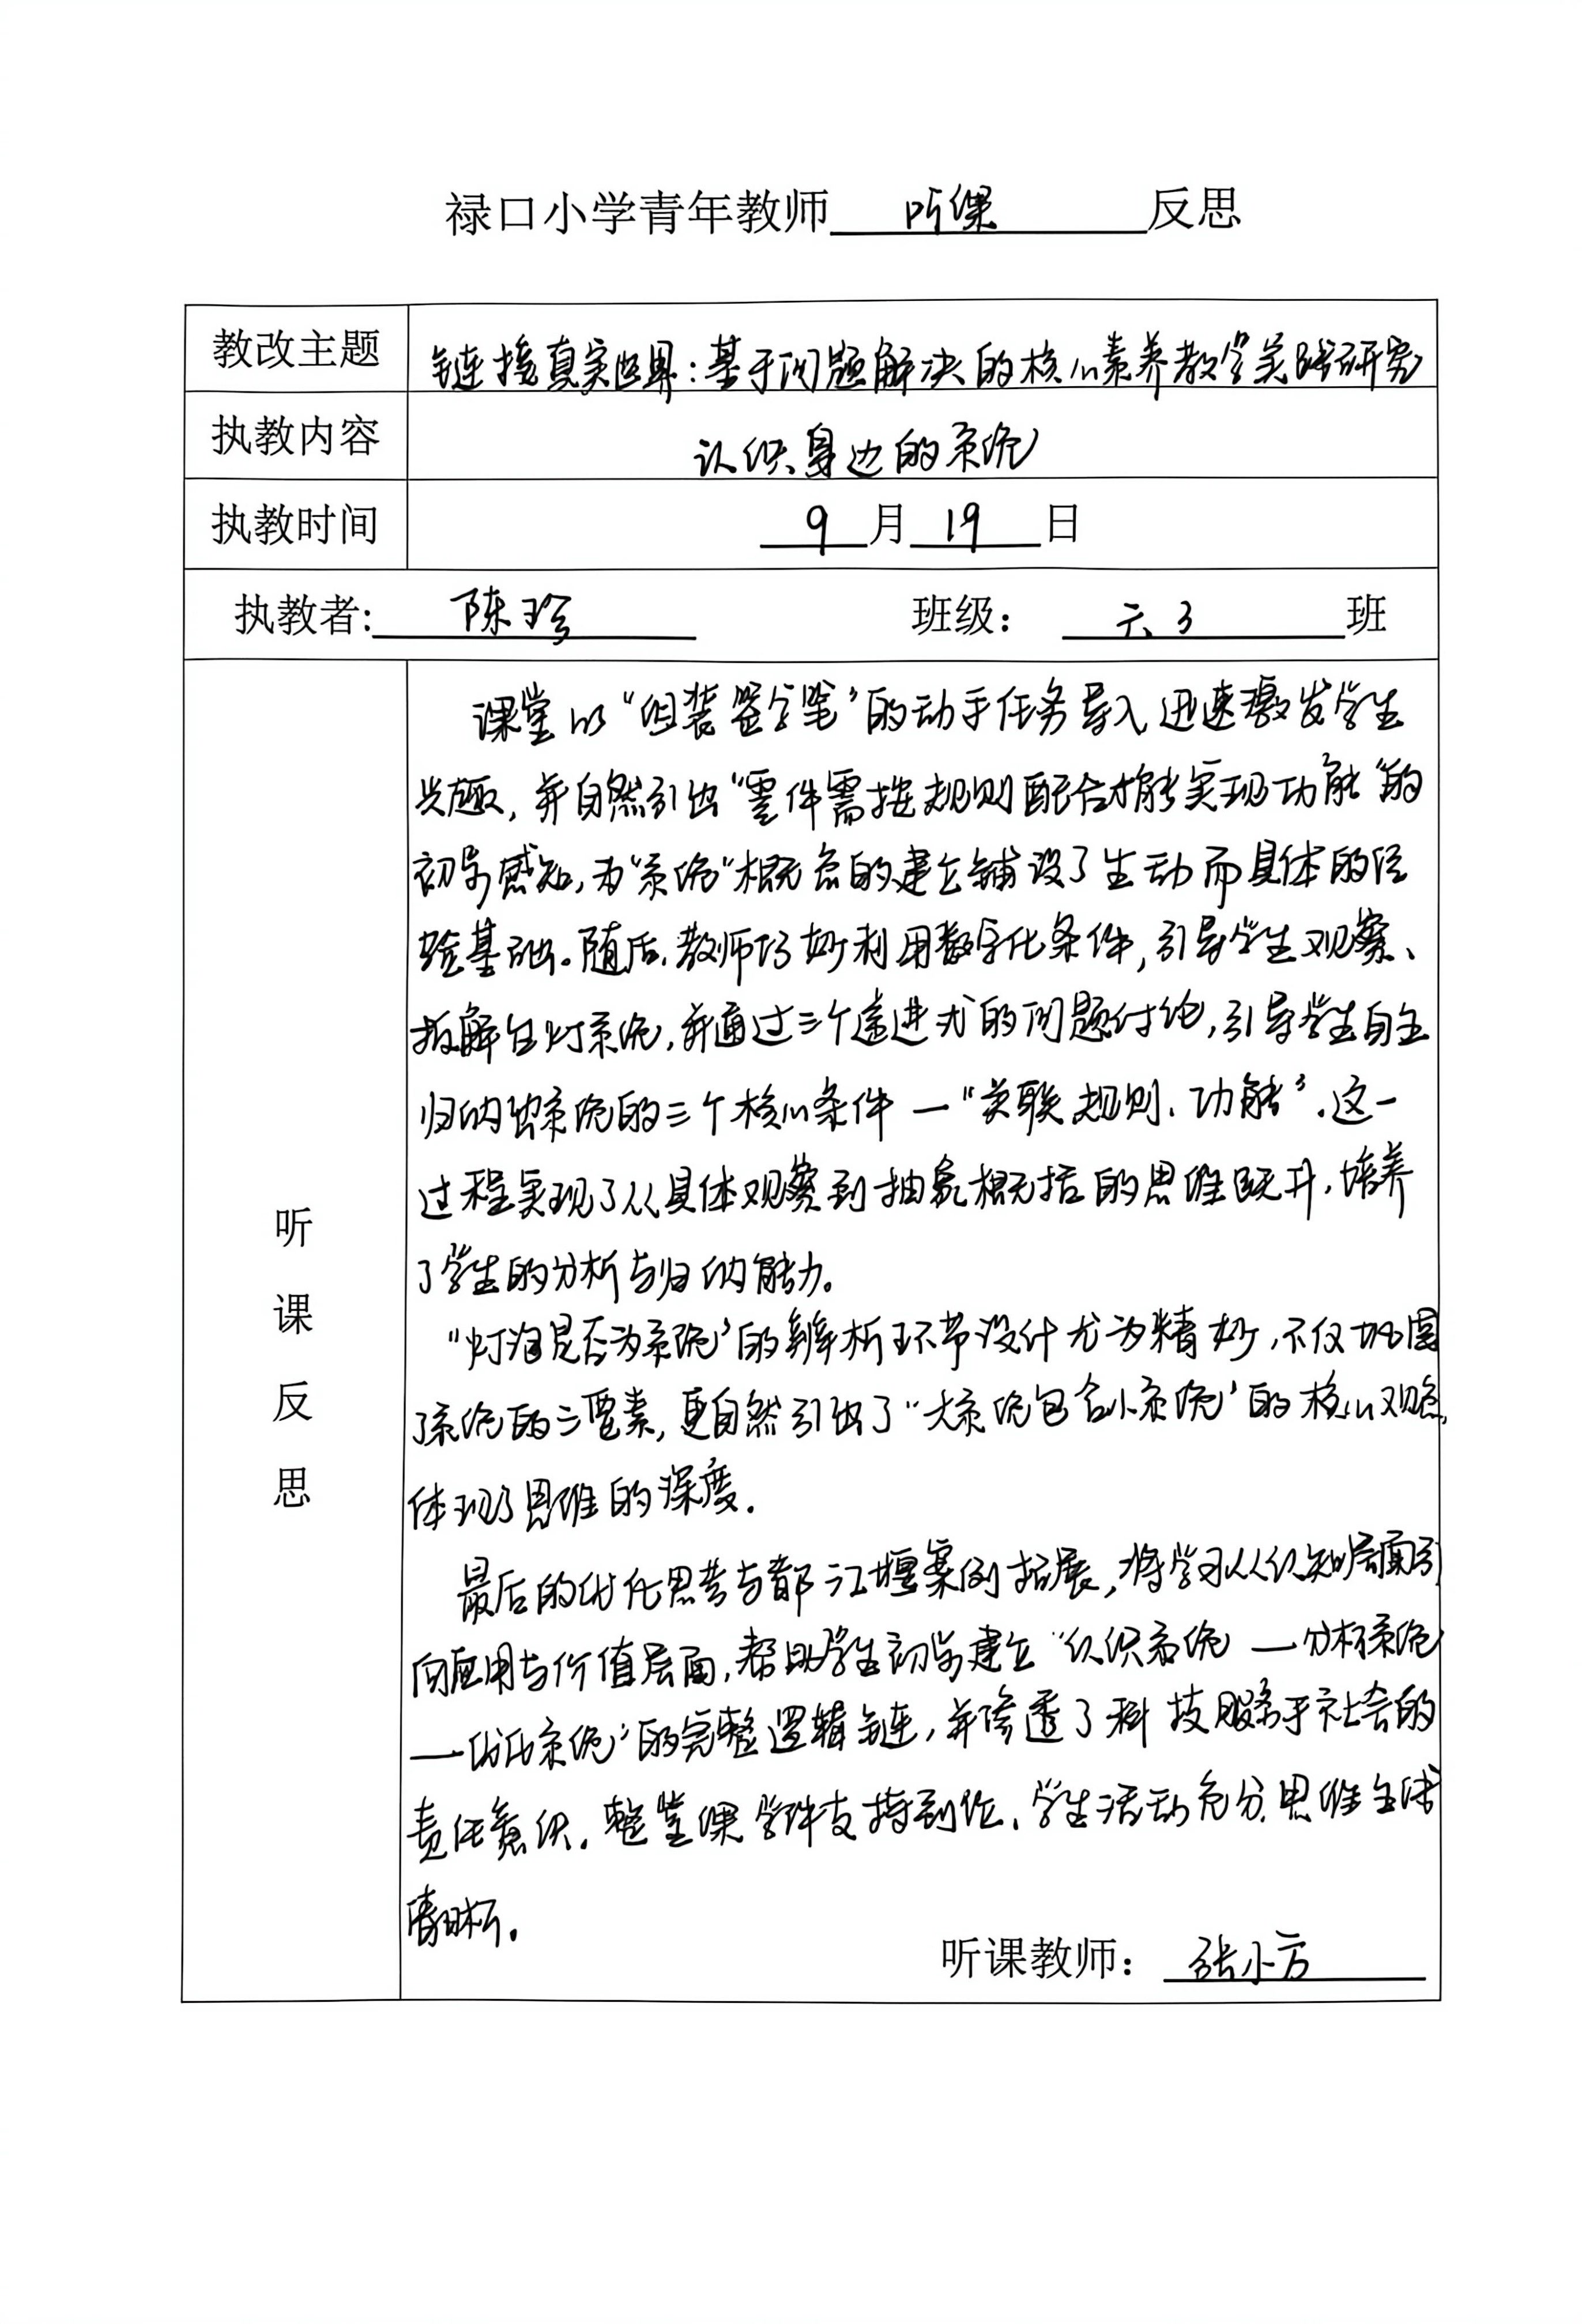 禄口小学青年教师 听课 反思
教改主题 链接真实世界:基于问题解决的核心素养教学实践研究
执教内容 认识身边的系统
执教时间 9月19日
执教者: 陈珍 班级: 六3班
听课反思
课堂以“组装签字笔”的动手任务导入迅速激发学生
兴趣,并自然引出“零件需按规则配合才能实现功能”的
初步感知,为“系统”概念的建立铺设了生动而具体的经
验基础。随后,教师巧妙利用数字化条件,引导学生观察、
拆解台灯系统,并通过三个递进式的问题讨论,引导学生自主
归纳出系统的三个核心条件—“关联、规则、功能”.这一
过程实现了从具体观察到抽象概括的思维跃升,培养
了学生的分析与归纳能力。
“灯泡是否为系统”的辨析环节设计尤为精妙,不仅巩固
了系统的三要素,更自然引出了“大系统包含小系统”的核心观念,
体现了思维的深度.
最后的优化思考与都江堰案例拓展,将学习从认知层面引
向应用与价值层面,帮助学生初步建立“认识系统—分析系统
—优化系统”的完整逻辑链,并渗透了科技服务于社会的
责任意识.整堂课学伴支持到位、学生活动充分,思维主线
清晰。
听课教师: 张小方